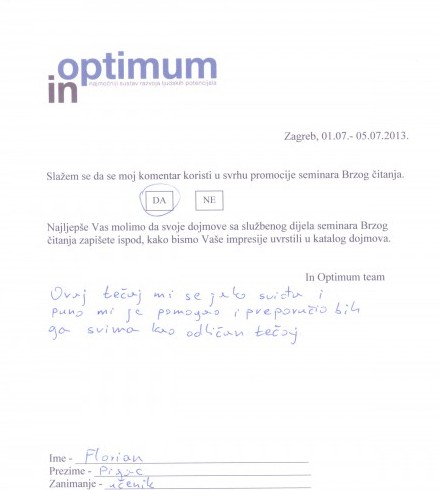 optimum
in najmoćniji sustav razvoja ljudskih potencijala
Zagreb, 01.07.- 05.07.2013.
Slažem se da se moj komentar koristi u svrhu promocije seminara Brzog čitanja.
DA NE
Najljepše Vas molimo da svoje dojmove sa službenog dijela seminara Brzog
čitanja zapišete ispod, kako bismo Vaše impresije uvrstili u katalog dojmova.
In Optimum team
Ovaj tečaj mi se jako svidia i
puno mi je pomogao i preporučio bih
ga svima kao odličan tečaj
Ime - Florian
Prezime -
Zanimanje - učenik